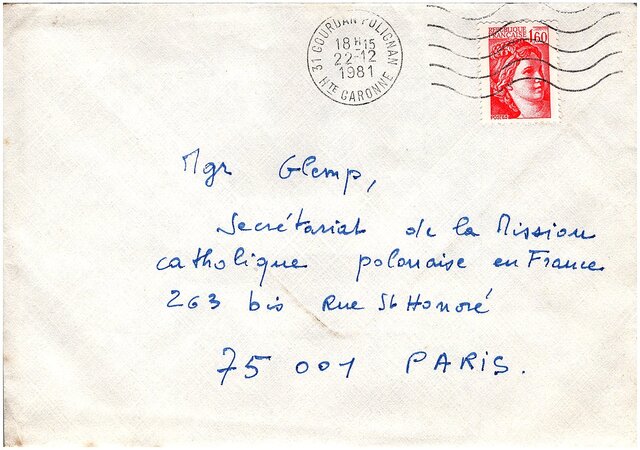 31 GOURDAN POLIGNAN
18 H 15
22-12
1981
HTE GARONNE
REPUBLIQUE
FRANÇAISE
1,60
POSTES
Mgr Glemp,
Secrétariat de la Mission
catholique polonaise en France
263 bis Rue St Honoré
75 001 PARIS.